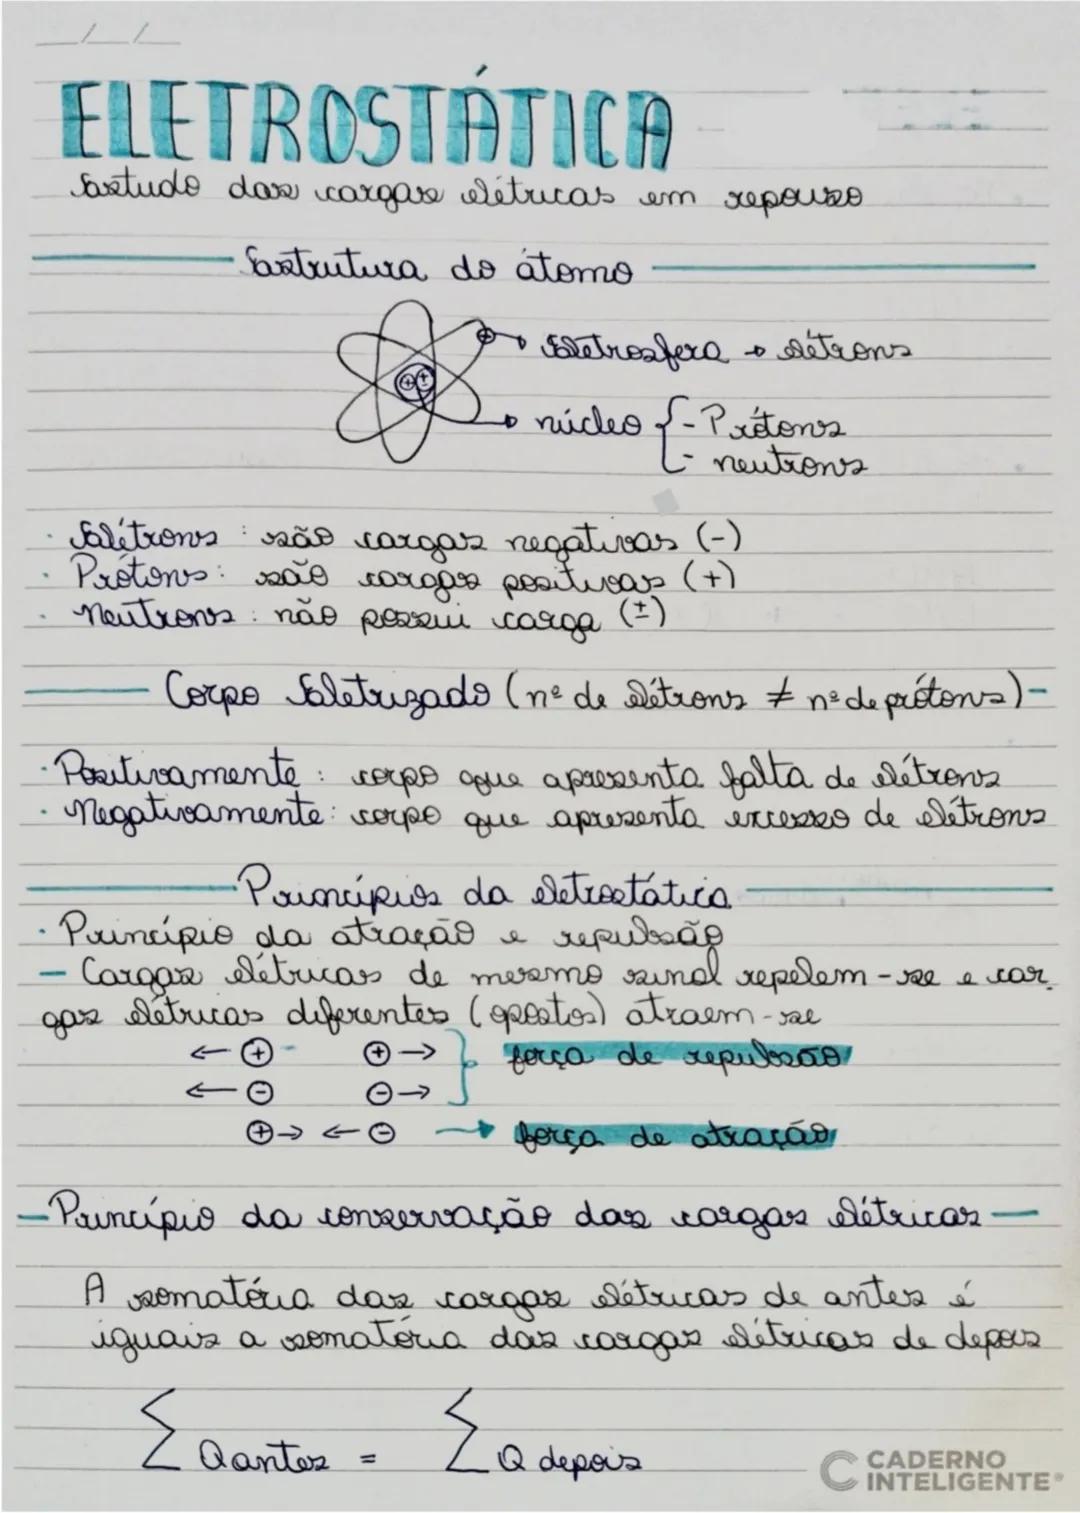 __/__/__
ELETROSTÁTICA
Estudo das cargas elétricas em repouso
Estrutura do átomo
Eletrosfera → elétrons
núcleo { - Prótons
- neutrons
· Elétrons: são cargas negativas (-)
· Prótons: são cargas positivas (+)
· Neutrons: não possui carga (±)
Corpo Eletrizado (nº de elétrons ≠ nº de prótons) -
· Positivamente: corpo que apresenta falta de elétrons
· Negativamente: corpo que apresenta excesso de elétrons
Princípios da eletrostática
· Princípio da atração e repulsão
- Cargas elétricas de mesmo sinal repelem-se e car
gas elétricas diferentes (opostos) atraem-se
← ⊕ ⊕ → } força de repulsão
← ⊖ ⊖ →
⊕ → ← ⊖ → força de atração
- Princípio da conservação das cargas elétricas -
A somatória das cargas elétricas de antes é
iguais a somatória das cargas elétricas de depois
∑ Q antes = ∑ Q depois
CADERNO
INTELIGENTE®